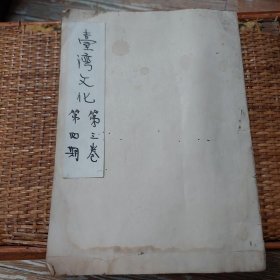 臺灣文化
第三卷
第四期